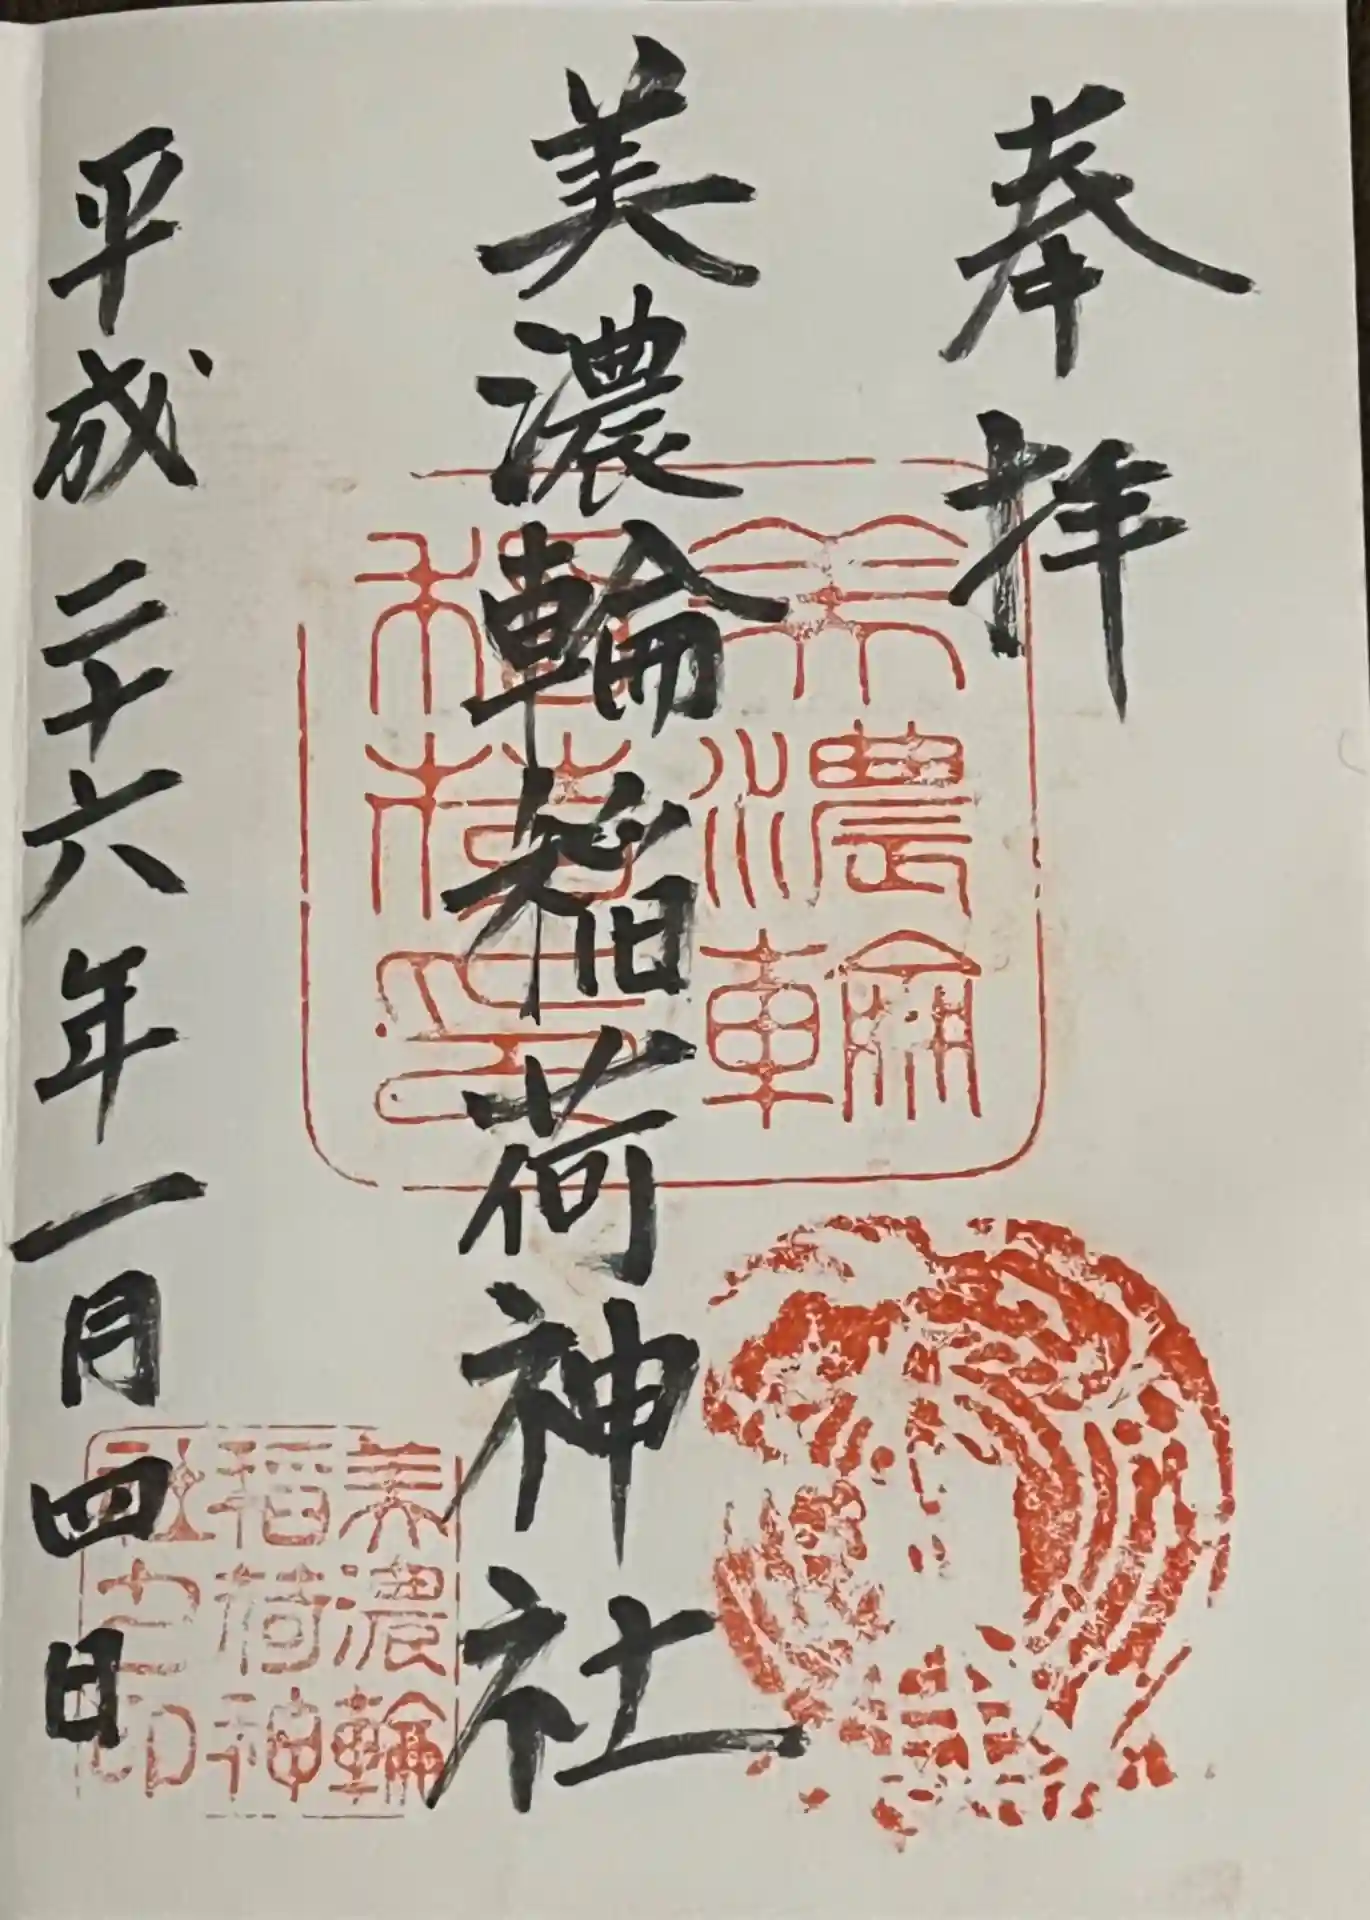 奉拝
美濃輪稲荷神社
平成二十六年一月四日
美濃輪
稲荷印
美濃輪
稲荷神
社之印